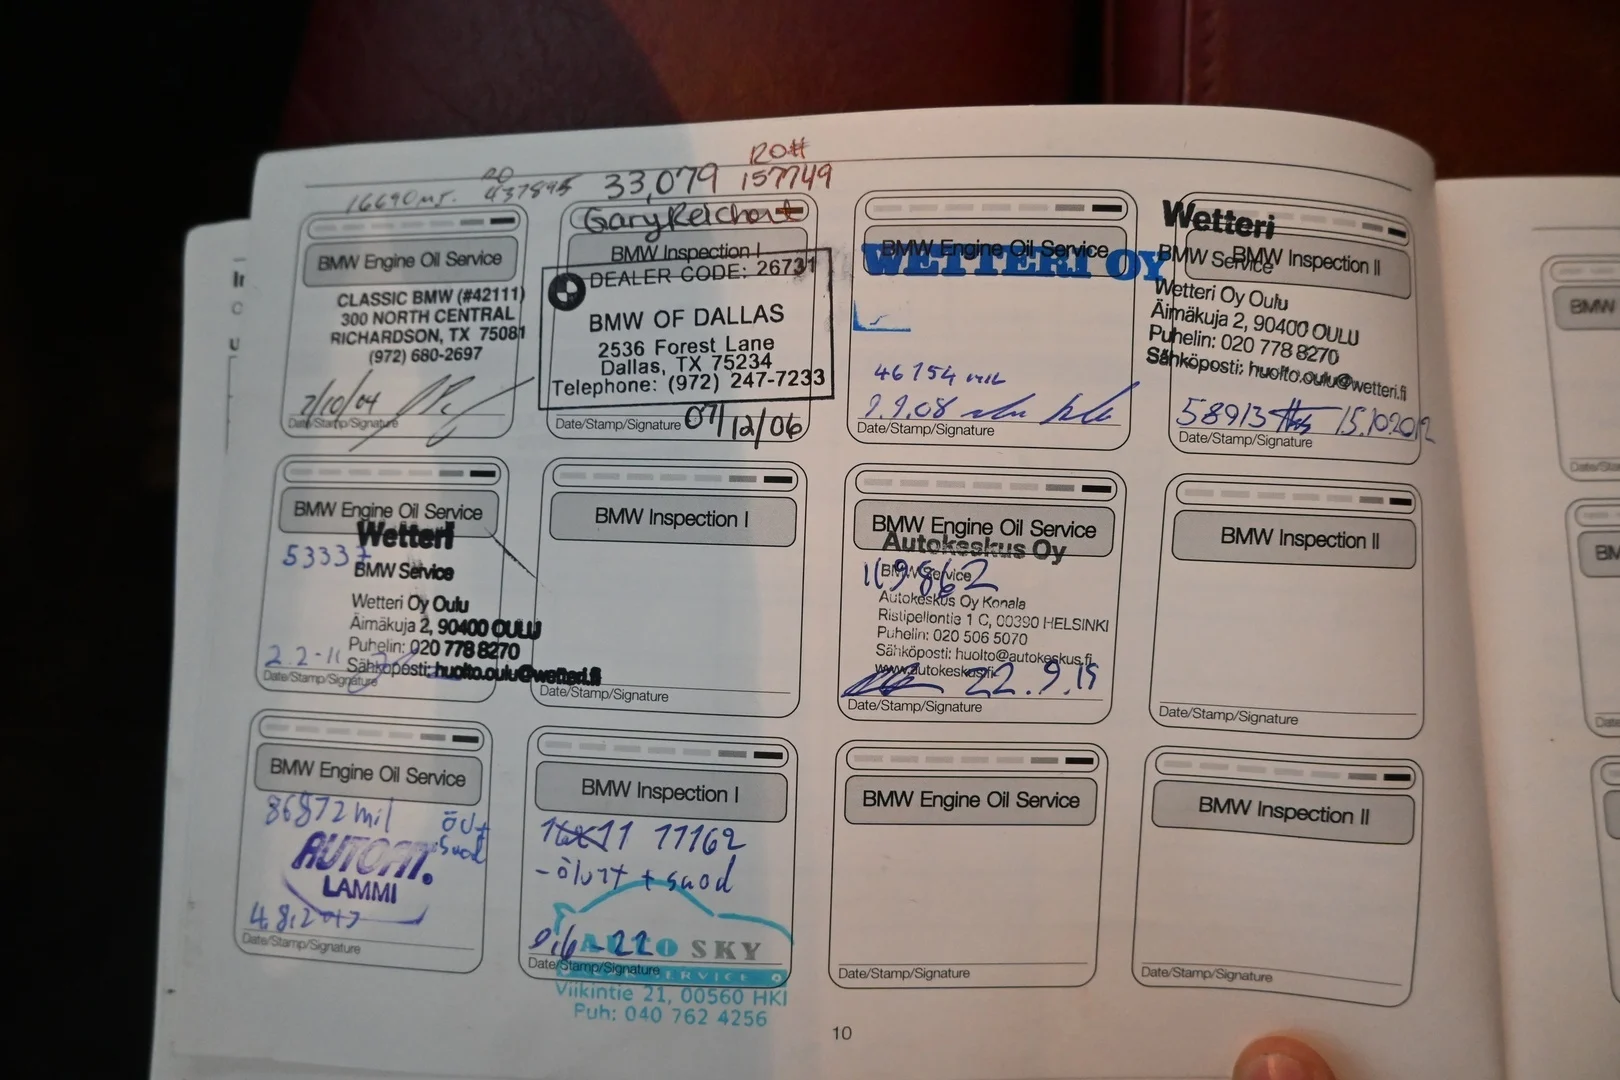 16690 mi. RO 437895
33,079
RO# 157749
BMW Engine Oil Service
CLASSIC BMW (#42111)
300 NORTH CENTRAL
RICHARDSON, TX 75081
(972) 680-2697
7/10/04
Date/Stamp/Signature
Gary Reichart
BMW Inspection I
DEALER CODE: 26731
BMW OF DALLAS
2536 Forest Lane
Dallas, TX 75234
Telephone: (972) 247-7233
07/12/06
Date/Stamp/Signature
BMW Engine Oil Service
WETTERI OY
46154 mil
9.9.08
Date/Stamp/Signature
Wetteri
BMW Service
BMW Inspection II
Wetteri Oy Oulu
Äimäkuja 2, 90400 OULU
Puhelin: 020 778 8270
Sähköposti: huolto.oulu@wetteri.fi
58913 15.10.2012
Date/Stamp/Signature
BMW Engine Oil Service
Wetteri
53337
BMW Service
Wetteri Oy Oulu
Äimäkuja 2, 90400 OULU
Puhelin: 020 778 8270
Sähköposti: huolto.oulu@wetteri.fi
2.2-11
Date/Stamp/Signature
BMW Inspection I
Date/Stamp/Signature
BMW Engine Oil Service
Autokeskus Oy
BMW Service
Autokeskus Oy Konala
Ristipellontie 1 C, 00390 HELSINKI
Puhelin: 020 506 5070
Sähköposti: huolto@autokeskus.fi
www.autokeskus.fi
22.9.15
Date/Stamp/Signature
BMW Inspection II
Date/Stamp/Signature
BMW Engine Oil Service
86872 mil
AUTOAT.
LAMMI
4.8.2017
Date/Stamp/Signature
BMW Inspection I
11162
- ölyt + suod
9.6-22
AUTO SKY
SERVICE
Date/Stamp/Signature
Viikintie 21, 00560 HKI
Puh: 040 762 4256
BMW Engine Oil Service
Date/Stamp/Signature
BMW Inspection II
Date/Stamp/Signature
10